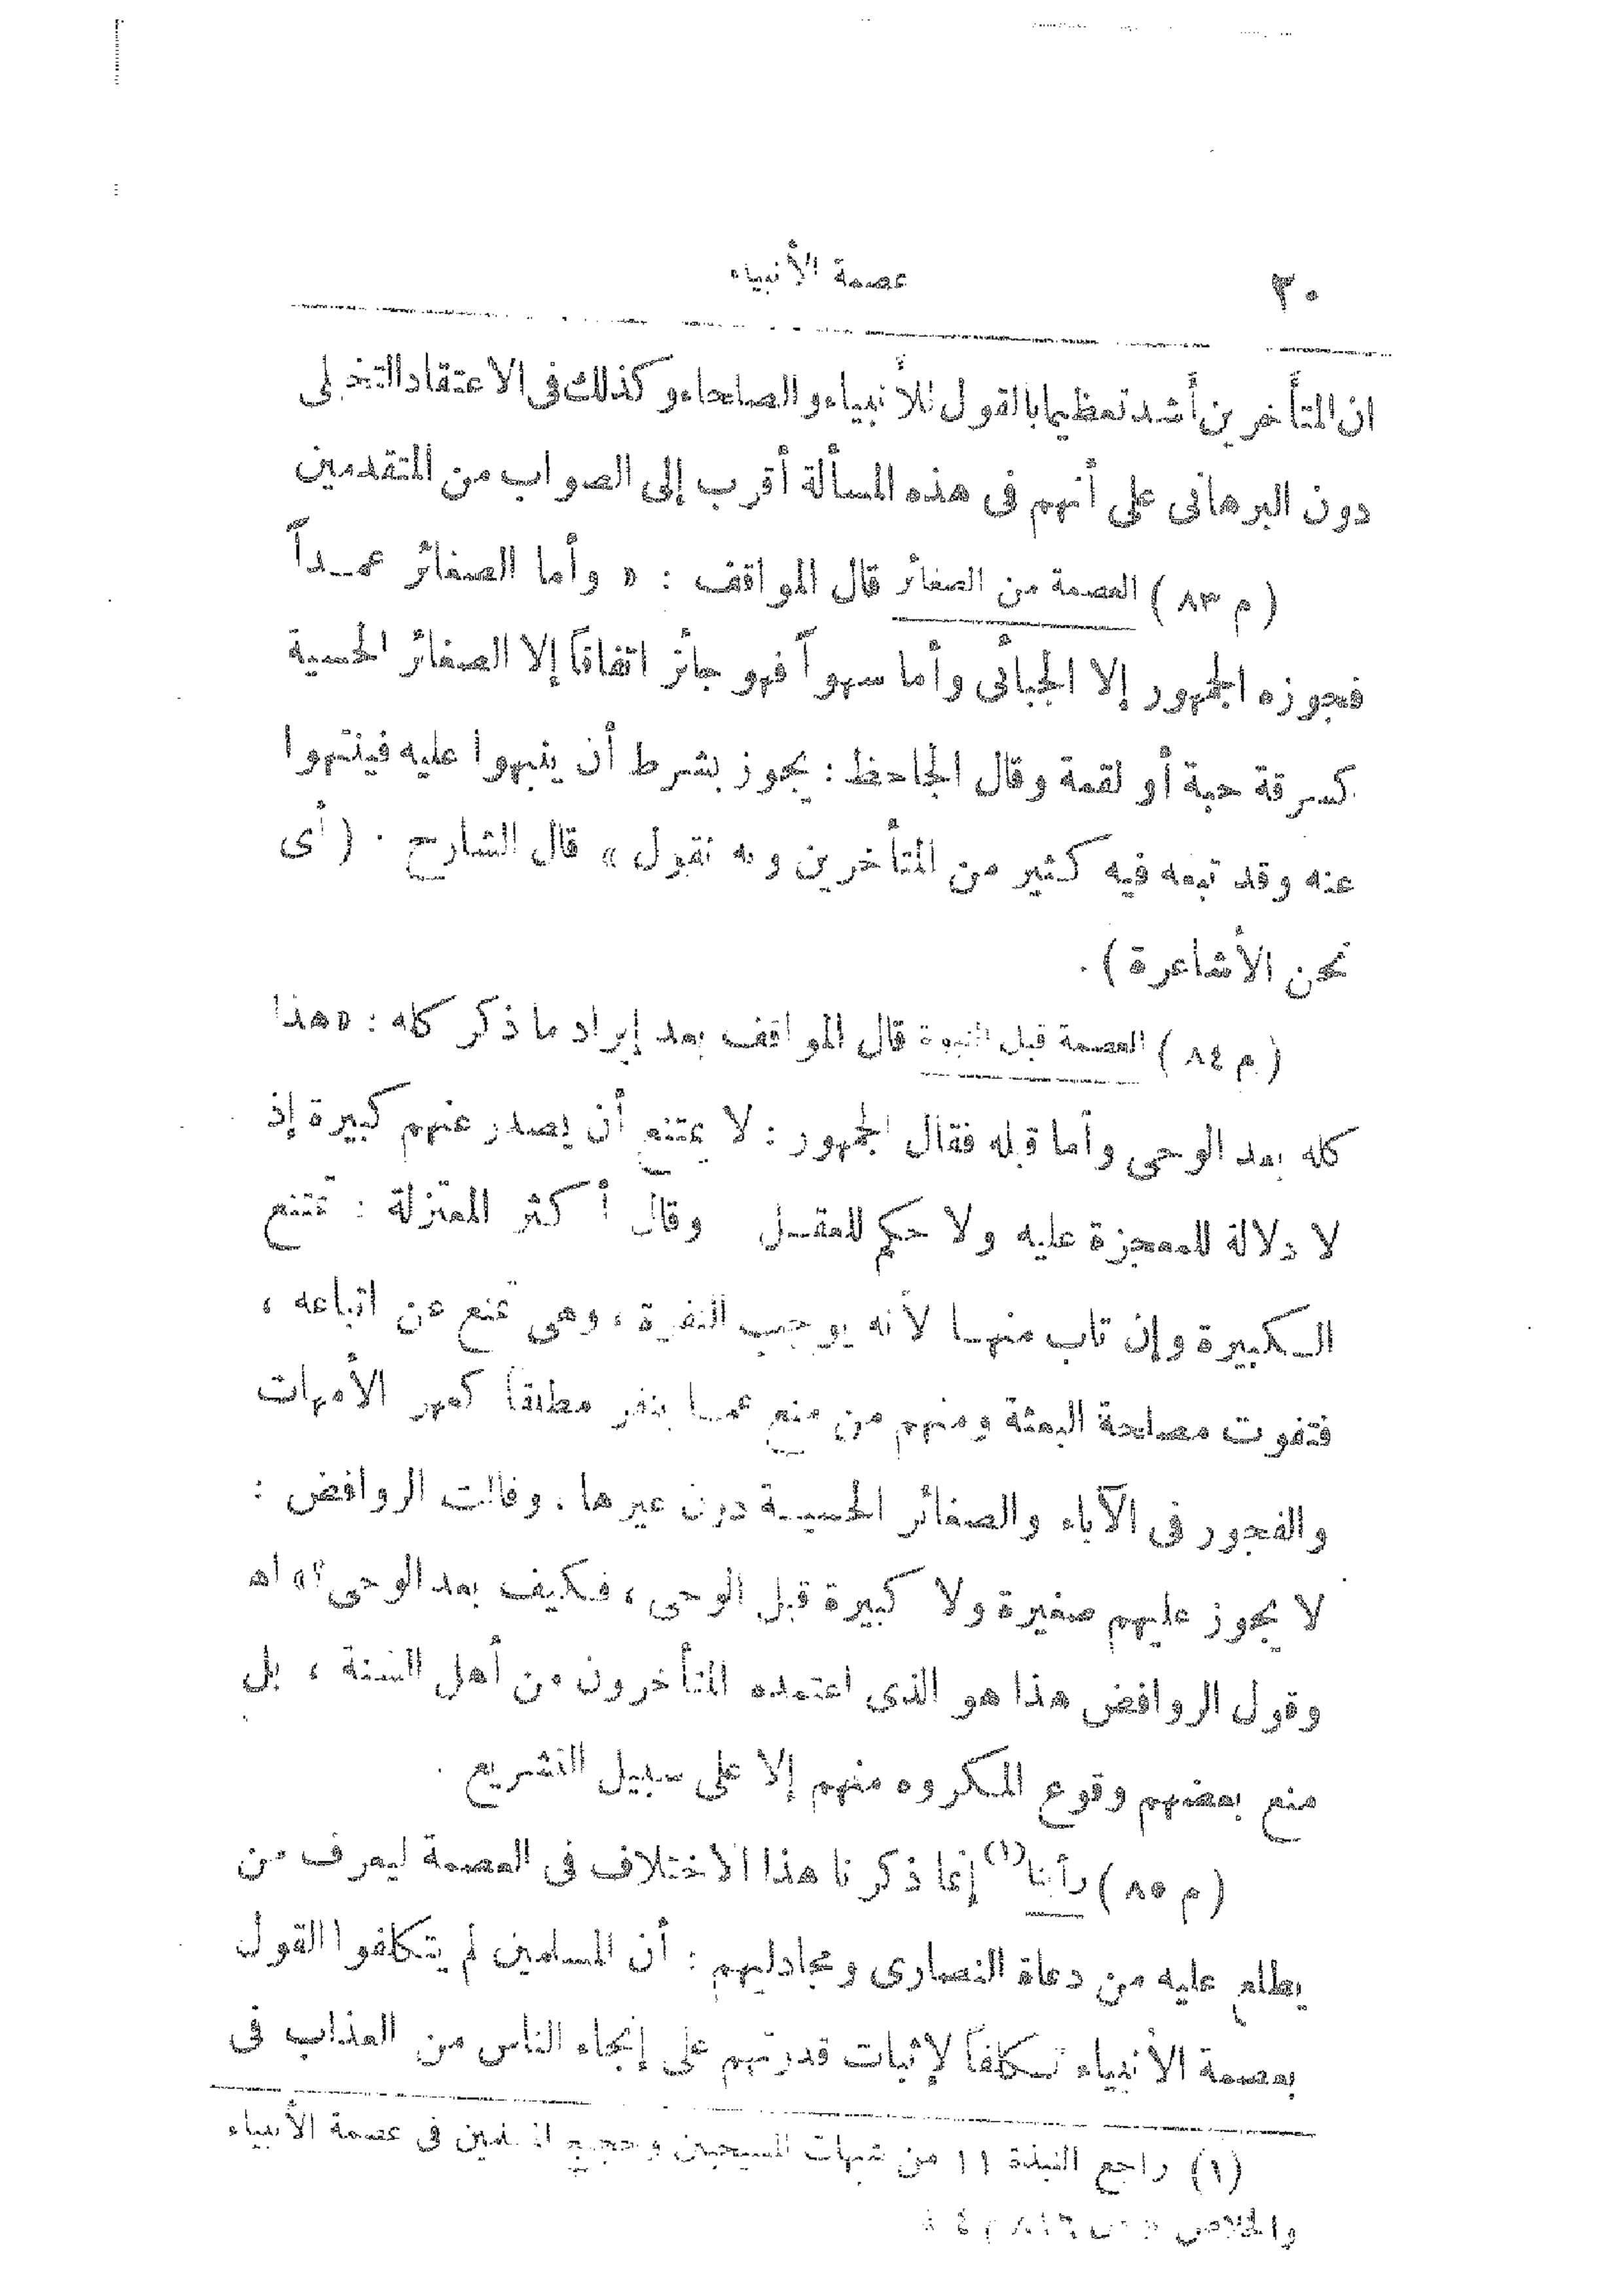 ٣٠
عصمة الأنبياء
ان المتأخرين أشد تعظيما بالقول للأنبياء والصلحاء وكذلك فى الاعتقاد التخيلى
دون البرهانى على أنهم فى هذه المسألة أقرب إلى الصواب من المتقدمين
( م ٨٣ ) العصمة من الصغائر قال المواقف : « وأما الصغائر عمداً
فجوزه الجمهور إلا الجبائى وأما سهواً فهو جائز اتفاقاً إلا الصغائر الخسية
كسرقة حبة أو لقمة وقال الجاحظ : يجوز بشرط أن ينبهوا عليه فينتهوا
عنه وقد تبعه فيه كثير من المتأخرين وبه نقول » قال الشارح . ( أى
نحن الأشاعرة ) .
( م ٨٤ ) العصمة قبل النبوة قال المواقف بعد إيراد ما ذكر كله : « هذا
كله بعد الوحى وأما قبله فقال الجمهور : لا يمتنع أن يصدر عنهم كبيرة إذ
لا دلالة للمعجزة عليه ولا حكم للعقل وقال أكثر المعتزلة : تمتنع
الكبيرة وإن تاب منها لأنه يوجب النفرة ، وهى تمنع عن اتباعه ،
فتفوت مصلحة البعثة ومنهم من منع عما ينفر مطلقاً كعهر الأمهات
والفجور فى الآباء والصغائر الخسيسة دون غيرها . وقالت الروافض :
لا يجوز عليهم صغيرة ولا كبيرة قبل الوحى ، فكيف بعد الوحى ؟ » اهـ
وقول الروافض هذا هو الذى اعتمده المتأخرون من أهل السنة ، بل
منع بعضهم وقوع المكروه منهم إلا على سبيل التشريع .
( م ٨٥ ) رأينا (١) إنما ذكرنا هذا الاختلاف فى العصمة ليعرف من
يطلع عليه من دعاة النصارى ومجادليهم : أن المسلمين لم يتكلفوا القول
بعصمة الأنبياء تكلفاً لإثبات قدرتهم على إنجاء الناس من العذاب فى
(١) راجع النبذة ١١ من شبهات المسيحيين وحجج المسلمين فى عصمة الأنبياء
والخلاص